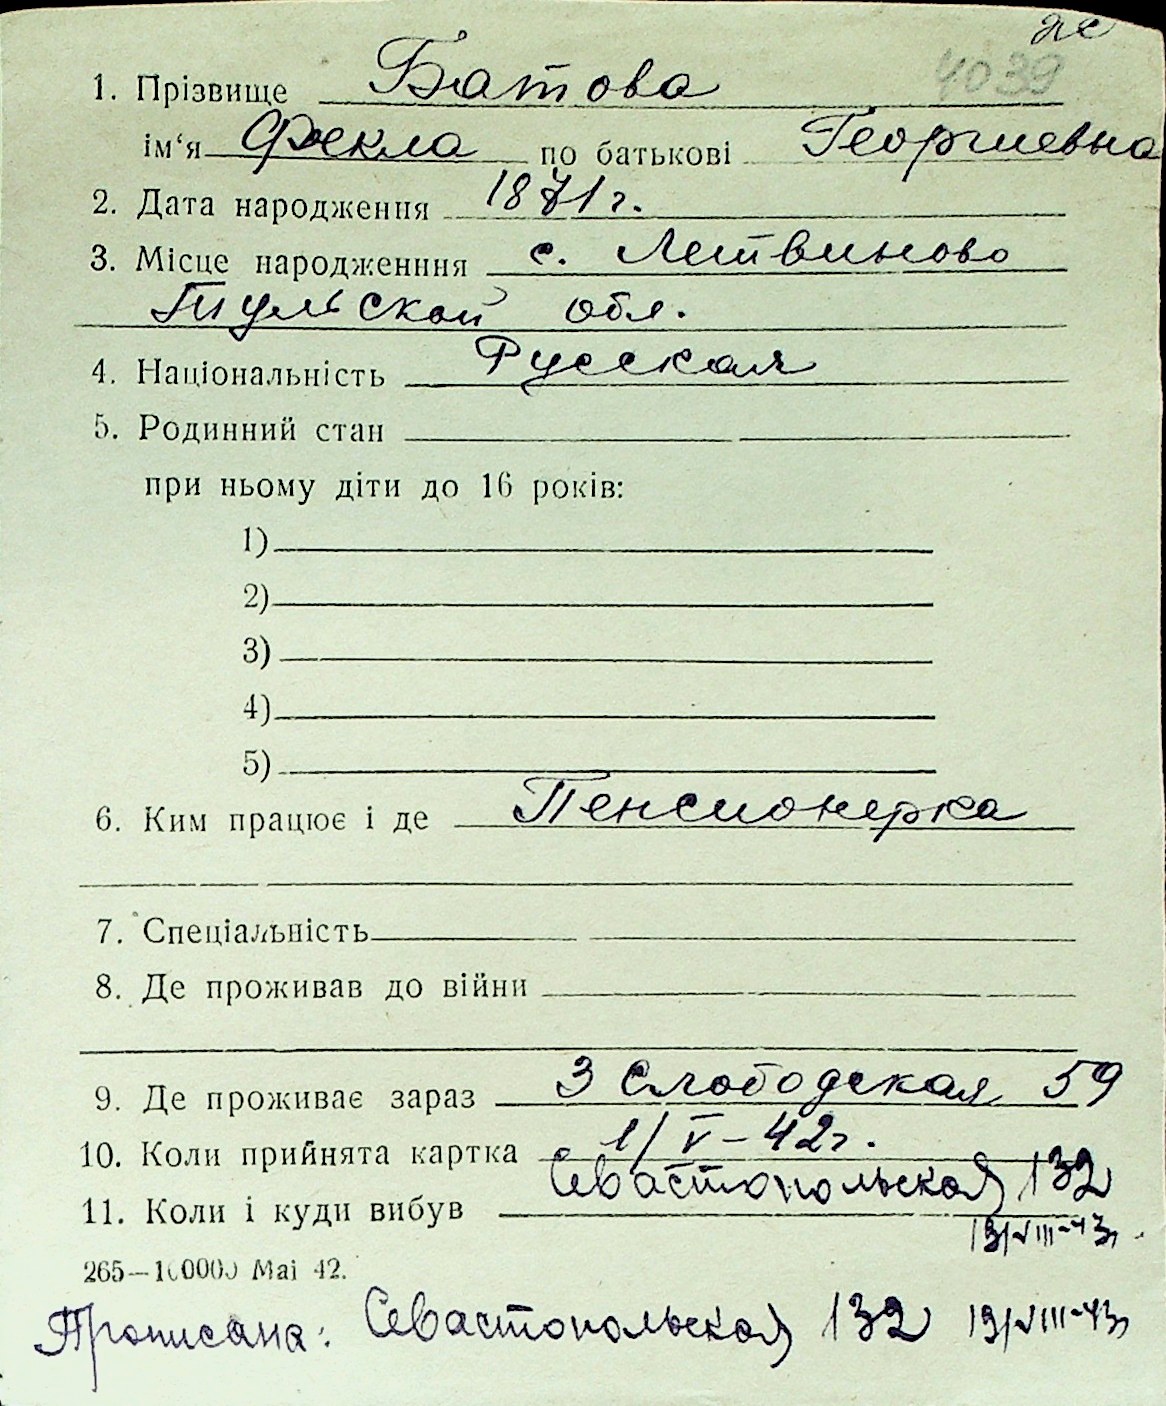 же
4039
1. Прізвище Батова
ім'я Фекла по батькові Георгиевна
2. Дата народження 1871 г.
3. Місце народженння с. Летвиново
Тульской обл.
4. Національність Русская
5. Родинний стан
при ньому діти до 16 років:
1)
2)
3)
4)
5)
6. Ким працює і де Пенсионерка
7. Спеціальність
8. Де проживав до війни
9. Де проживає зараз 3 Слободская 59
10. Коли прийнята картка 1/V–42г.
11. Коли і куди вибув Севастопольская 132
19/VIII-43
265—10000 Mai 42.
Прописана: Севастопольская 132 19/VIII-43